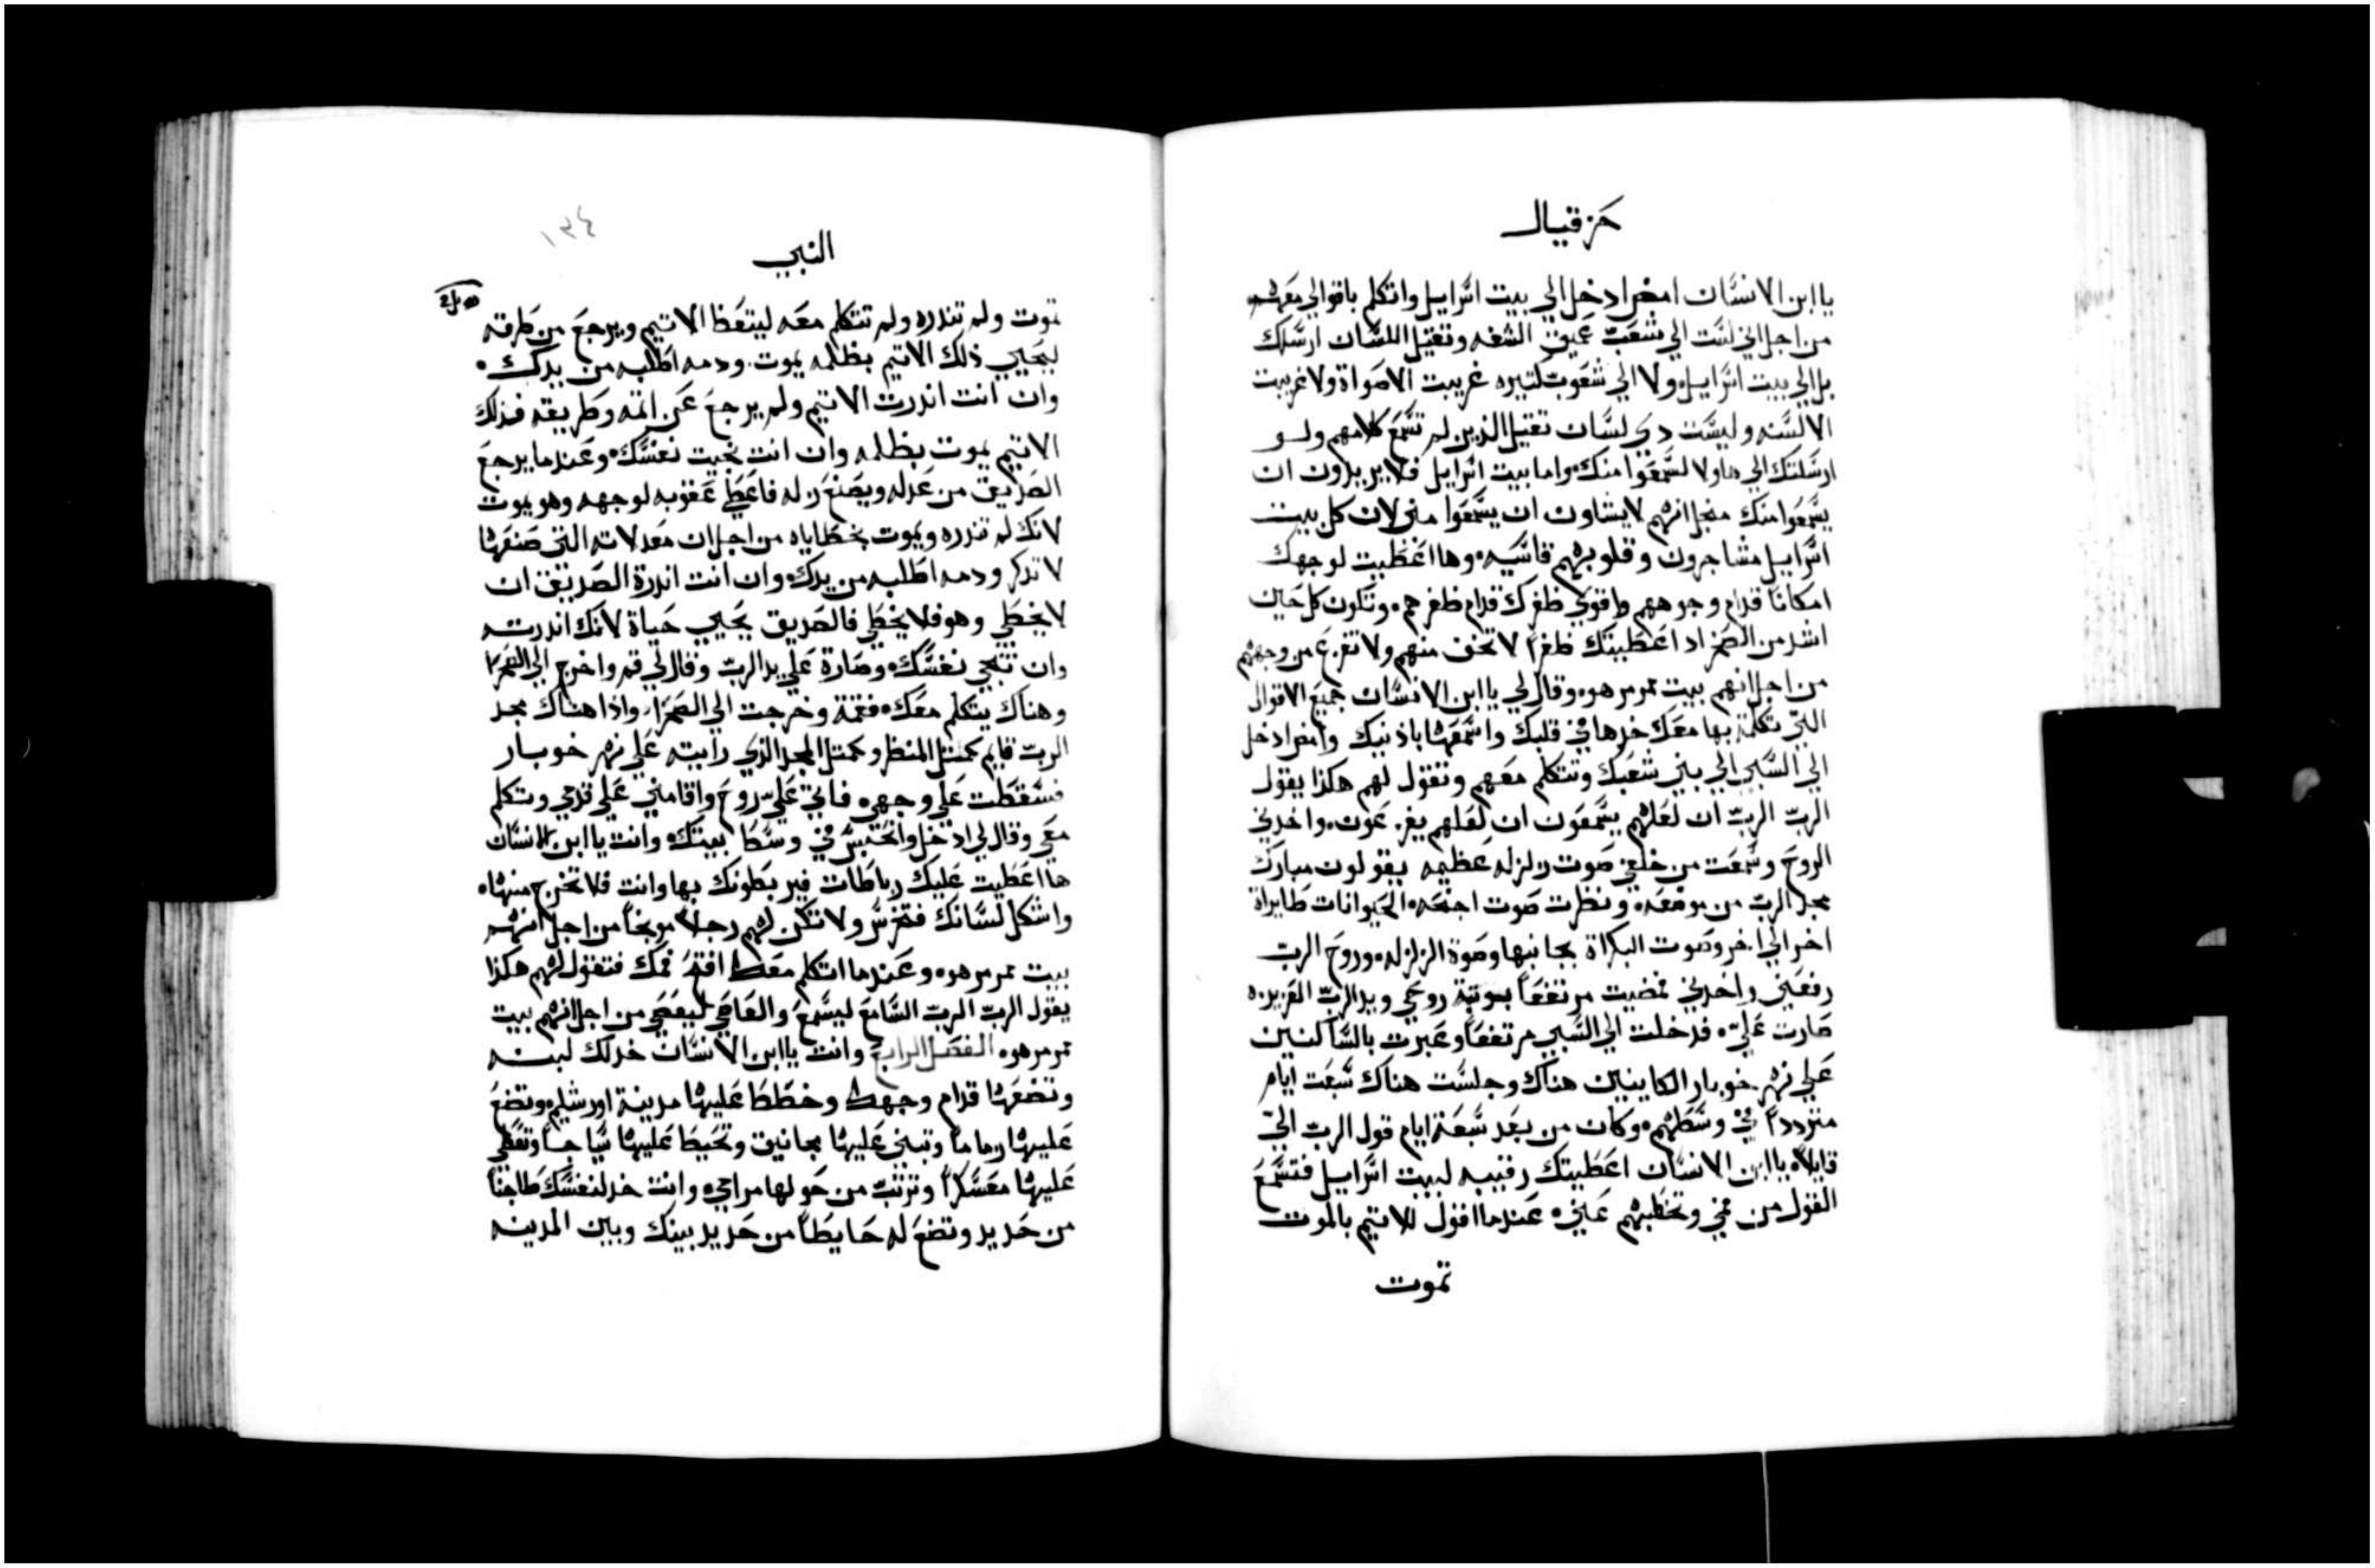 حزقيال
يا ابن الانسان امض ادخل الي بيت اسرايل واتكلم باقوالي معهم
من اجل اني لست الي شعب عميق الشفه وتقيل اللسان ارسلك
بل الي بيت اسرايل ولا الي شعوب كتيره غريبت الاصواة ولا غريبت
الالسنه وليست دي لسان تقيل الذين لم تسمع كلامهم ولو
ارسلتك الي هاولا لسمعوا منك واما بيت اسرايل فلا يريدون ان
يسمعوا منك منجل انهم لا يشاون ان يسمعوا مني لان كل بيت
اسرايل مشاجرون وقلوبهم قاسيه وها اعطيت لوجهك
امكانا قدام وجوههم واقوي ظفرك قدام ظفرهم وتكون كل حين
اشد من الصخر اد اعطيتك ظفرا لا تخف منهم ولا تفزع من وجههم
من اجل انهم بيت ممرمر هو وقال لي يا ابن الانسان جميع الاقوال
التي تكلمة بها معك خدها في قلبك واسمعها باذنيك وامض ادخل
الي السبي الي بني شعبك وتتكلم معهم وتقول لهم هكذا يقول
الرب الرب ان لعلهم يسمعون ان لعلهم يفزعون واخدني
الروح وسمعت من خلفي صوت زلزله عظيمه يقولون مبارك
مجد الرب من موضعه ونظرت صوت اجنحه الحيوانات طايراة
اخر الي اخر وصوت البكراة بجانبها وصوة الزلزله وروح الرب
رفعني واخدني فمضيت مرتفعا بوتبة روحي ويد الرب العزيزه
صارت علي فدخلت الي السبي مرتفعا وعبرت بالساكنين
علي نهر خوبار الكاينين هناك وجلست هناك سبعت ايام
متردداً في وسطهم وكان من بعد سبعة ايام قول الرب الي
قايلا يا ابن الانسان اعطيتك رقيبه لبيت اسرايل فتسمع
القول من في وتخطبهم عني عندما اقول للاتيم بالموت
تموت
النبي
١٣٤
تموت ولم تندره ولم تتكلم معه ليتعظ الاتيم ويرجع من طرقه
ليحيي ذلك الاتيم بظلمه يموت ودمه اطلبه من يدك
وان انت اندرت الاتيم ولم يرجع عن اتمه وطريقه فذلك
الاتيم يموت بظلمه وان انت نجيت نفسك وعندما يرجع
الصديق من عدله ويصنع زله فاعطي عقوبه لوجهه وهو يموت
لانك لم تندره ويموت بخطاياه من اجل ان معدلاته التي صنعها
لا تدكر ودمه اطلبه من يدك وان انت اندرة الصديق ان
لا يخطي وهو فلا يخطي فالصديق يحيي حياة لانك اندرته
وان تنجي نفسك وصارة علي يد الرب وقال لي قم واخرج الي الصحرا
وهناك يتكلم معك فقمة وخرجت الي الصحرا واذا هناك مجد
الرب قايم كمتل المنظر وكمتل المجد الذي رايته علي نهر خوبار
فسقطت علي وجهي فاتي علي روح واقامني علي قدمي وتكلم
معي وقال لي ادخل وانحبس في وسط بيتك وانت يا ابن الانسان
ها اعطيت عليك رباطات فيربطونك بها وانت فلا تخرج منها
واشكل لسانك فتخرس ولا تكن لهم رجلا موبخاً من اجل انهم
بيت ممرمر هو وعندما اتكلم معك افتح فمك فتقول لهم هكذا
يقول الرب الرب السامع ليسمع والعاصي ليعصي من اجل انهم بيت
ممرمر هو الفصل الرابع وانت يا ابن الانسان خد لك لبنه
وتضعها قدام وجهك وخطط عليها مدينة اورشليم وتضع
عليها زماما وتبني عليها مجانيق وتحيط عليها سياجا وتعطي
عليها معسكرا وترتب من حولها مرامي وانت خد لنفسك طاجنا
من حديد وتضع له حايطاً من حديد بينك وبين المدينه